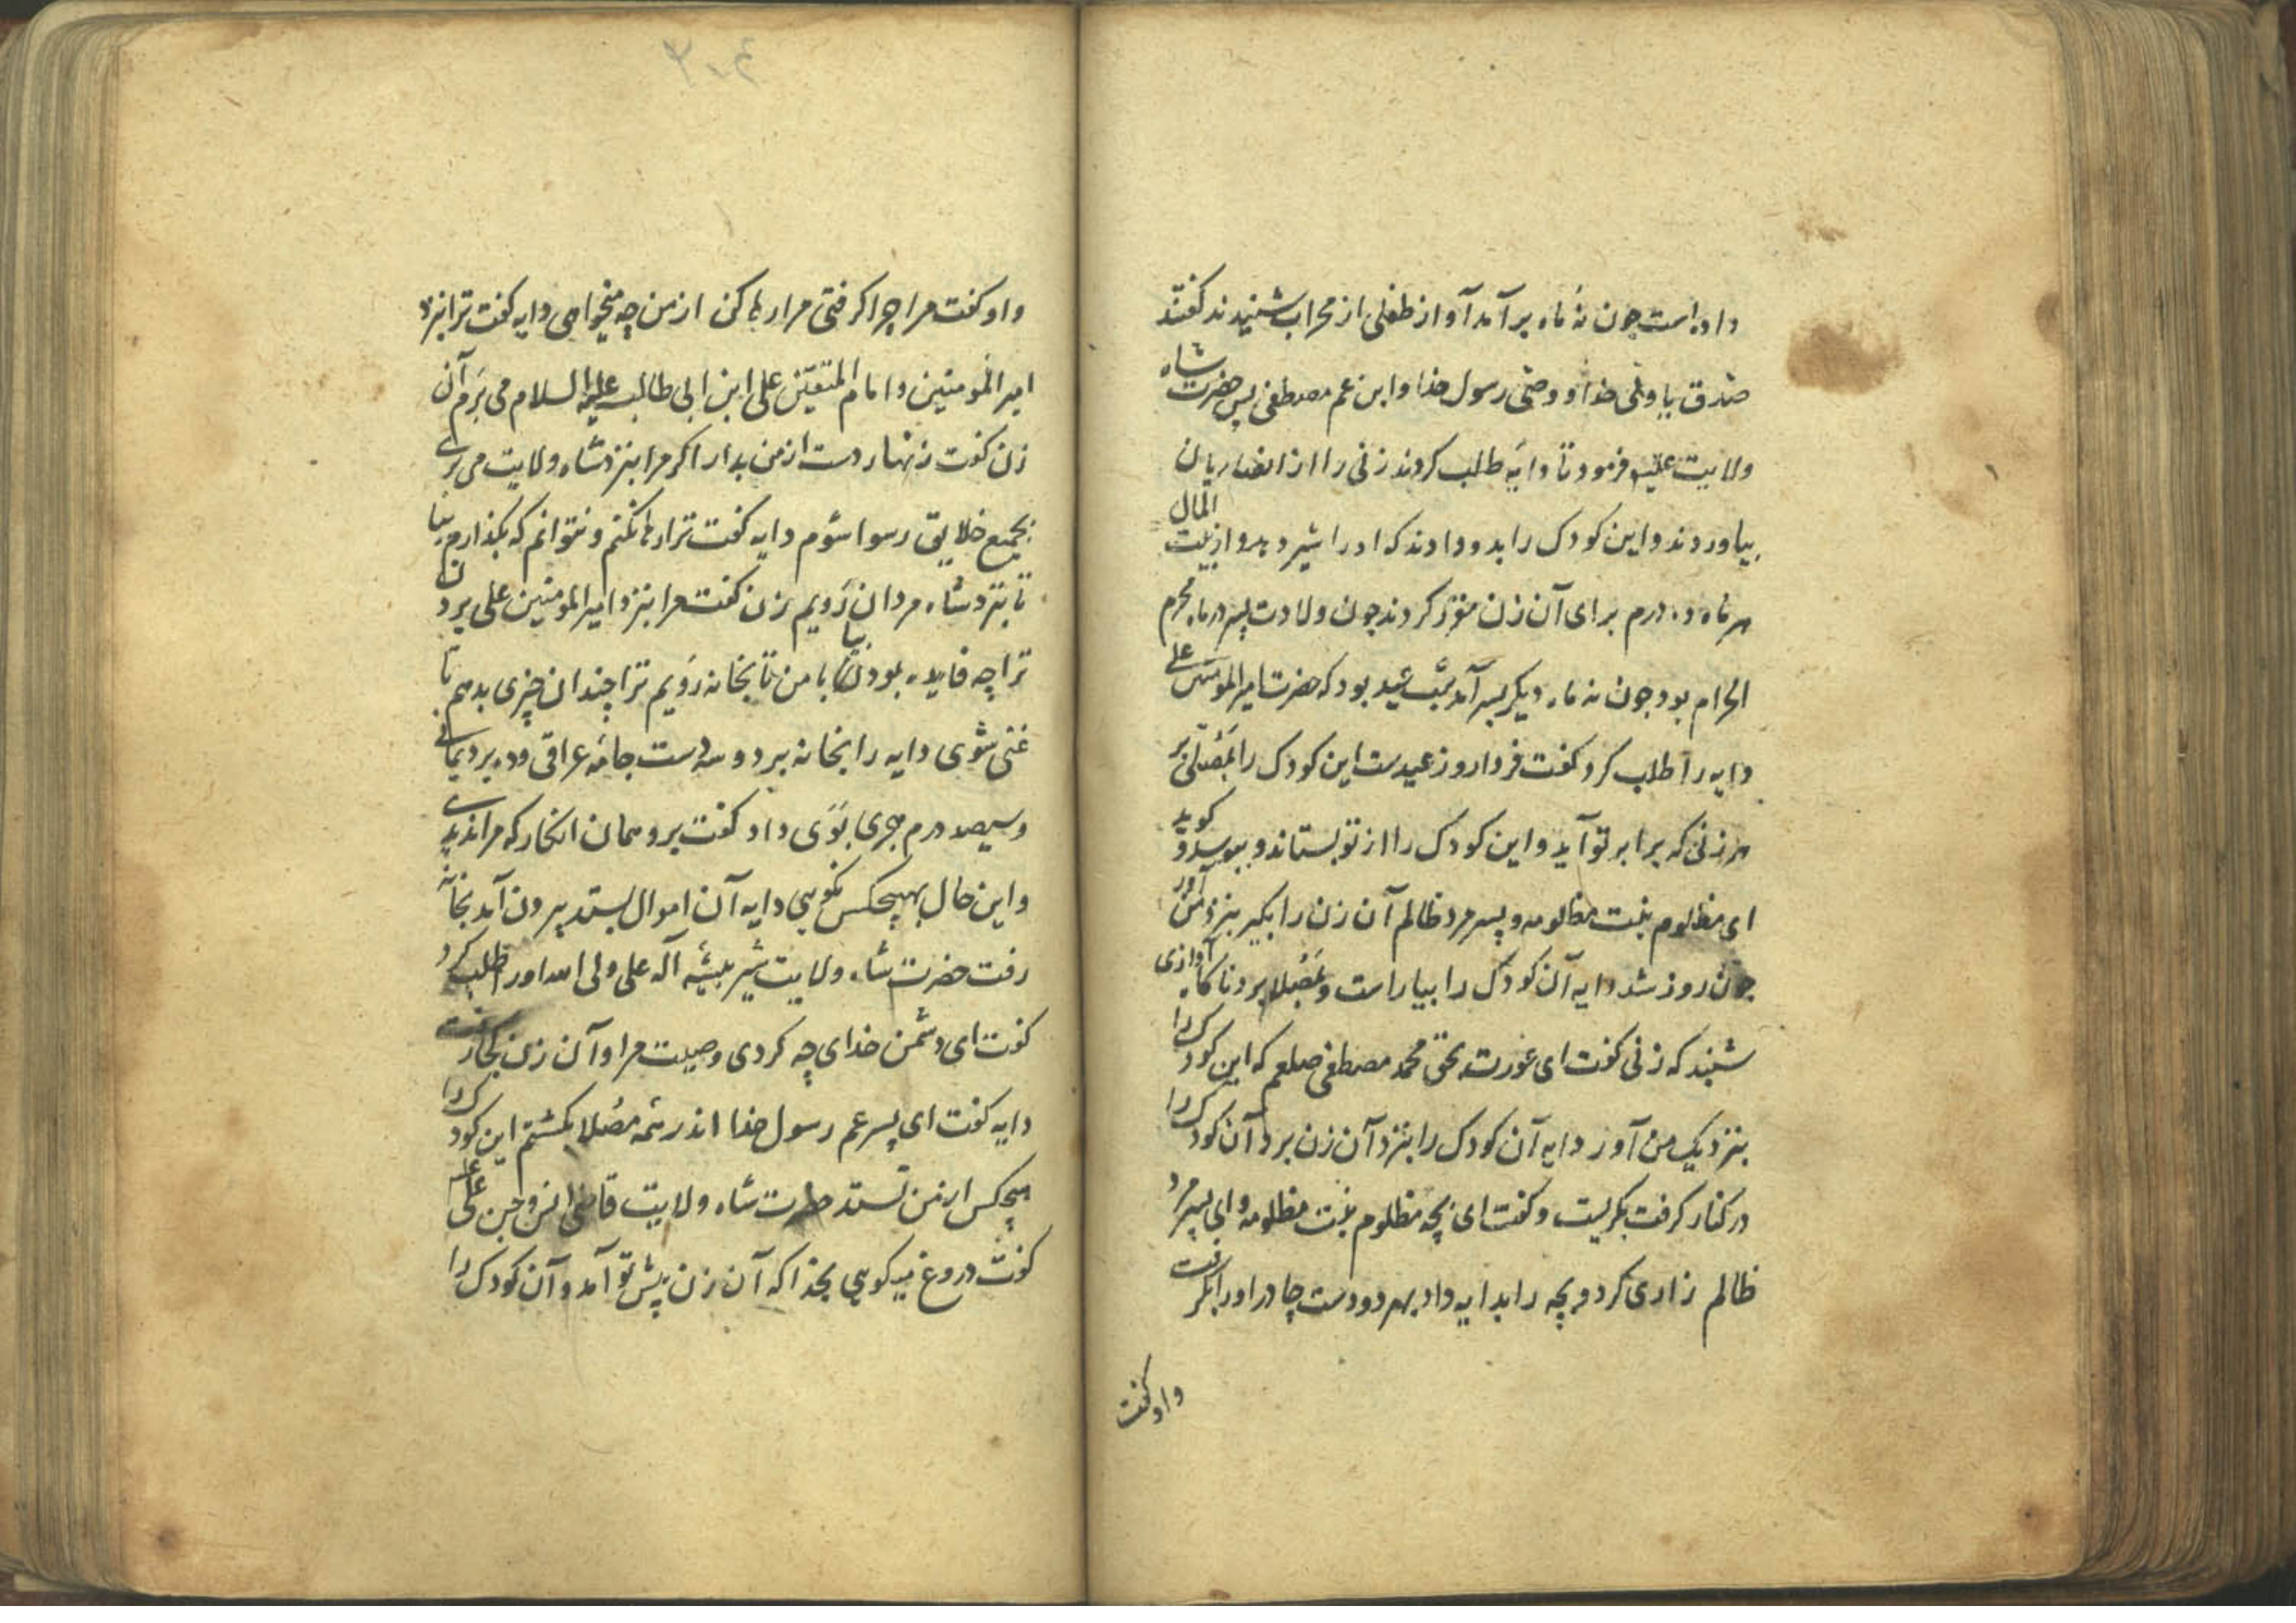 داده است چون نه ماه برآمد آواز طفلی از محراب شنیدند گفتند
صدق یا ولی خدا و وصی رسول خدا و ابن عم مصطفی پس حضرت شاه
ولایت علیه فرمود تا دایه طلب کردند زنی را از انصاریان
بیاوردند و این کودک را بدو دادند که او را شیر دهد و از بیت المال
هر ماه ده درم برای آن زن مقرر کردند چون ولادت پسر در ماه محرم
الحرام بود چون نه ماه دیگر بسر آمد شب عید بود که حضرت امیرالمومنین علی
دایه را طلب کرد و کفت فردا روز عیدست این کودک را بمصلی بر
هر زنی که برابر تو آید و این کودک را از تو بستاند و ببوسد و کوید
ای مظلوم بنت مظلومه و پسر مرد ظالم آن زن را بکیر بنزد من آور
چون روز شد دایه آن کودک را بیاراست و بمصلا برد ناکاه آوازی
شنید که زنی کفت ای عورت بحق محمد مصطفی صلعم که این کودک را
بنزدیک من آور دایه آن کودک را بنزد آن زن برد آن کودک را
در کنار کرفت بکریست و کفت ای بچه مظلوم بنت مظلومه و ای پسر مرد
ظالم زاری کرد و بچه را بدایه داد بهر دو دست چادر او را بکرفت
داد کفت
۲۰۴
داد کفت مرا چرا کرفتی مرا رها کن از من چه میخواهی دایه کفت ترا بنزد
امیرالمومنین و امام المتقین علی ابن ابی طالب علیه السلام می برم آن
زن کفت زنهار دست از من بدار اکر مرا بنزد شاه ولایت می بری
بجمیع خلایق رسوا شوم دایه کفت ترا رها نکنم و نتوانم که بکذارم بیا
تا بنزد شاه مردان رویم زن کفت مرا بنزد امیرالمومنین علی بردن
ترا چه فایده بود بیا با من تا بخانه رویم ترا چندان چیزی بدهم تا
غنی شوی دایه را بخانه برد و سه دست جامه عراقی و دو برد یمانی
و سیصد درم هجری بوی داد کفت برو همان انکار که مرا ندیدی
و این حال بهیچکس نکویی دایه آن اموال بستد بیرون آمد بخانه
رفت حضرت شاه ولایت شیر بیشه اله علی ولی الله او را طلب کرد
کفت ای دشمن خدای چه کردی وصیت مرا و آن زن کجا رفت
دایه کفت ای پسر عم رسول خدا اندر همه مصلا بکشتم این کودک را
هیچکس از من نستد حضرت شاه ولایت قاضی انس و جن علی علیه
کفت دروغ میکویی بخدا که آن زن پیش تو آمد و آن کودک را